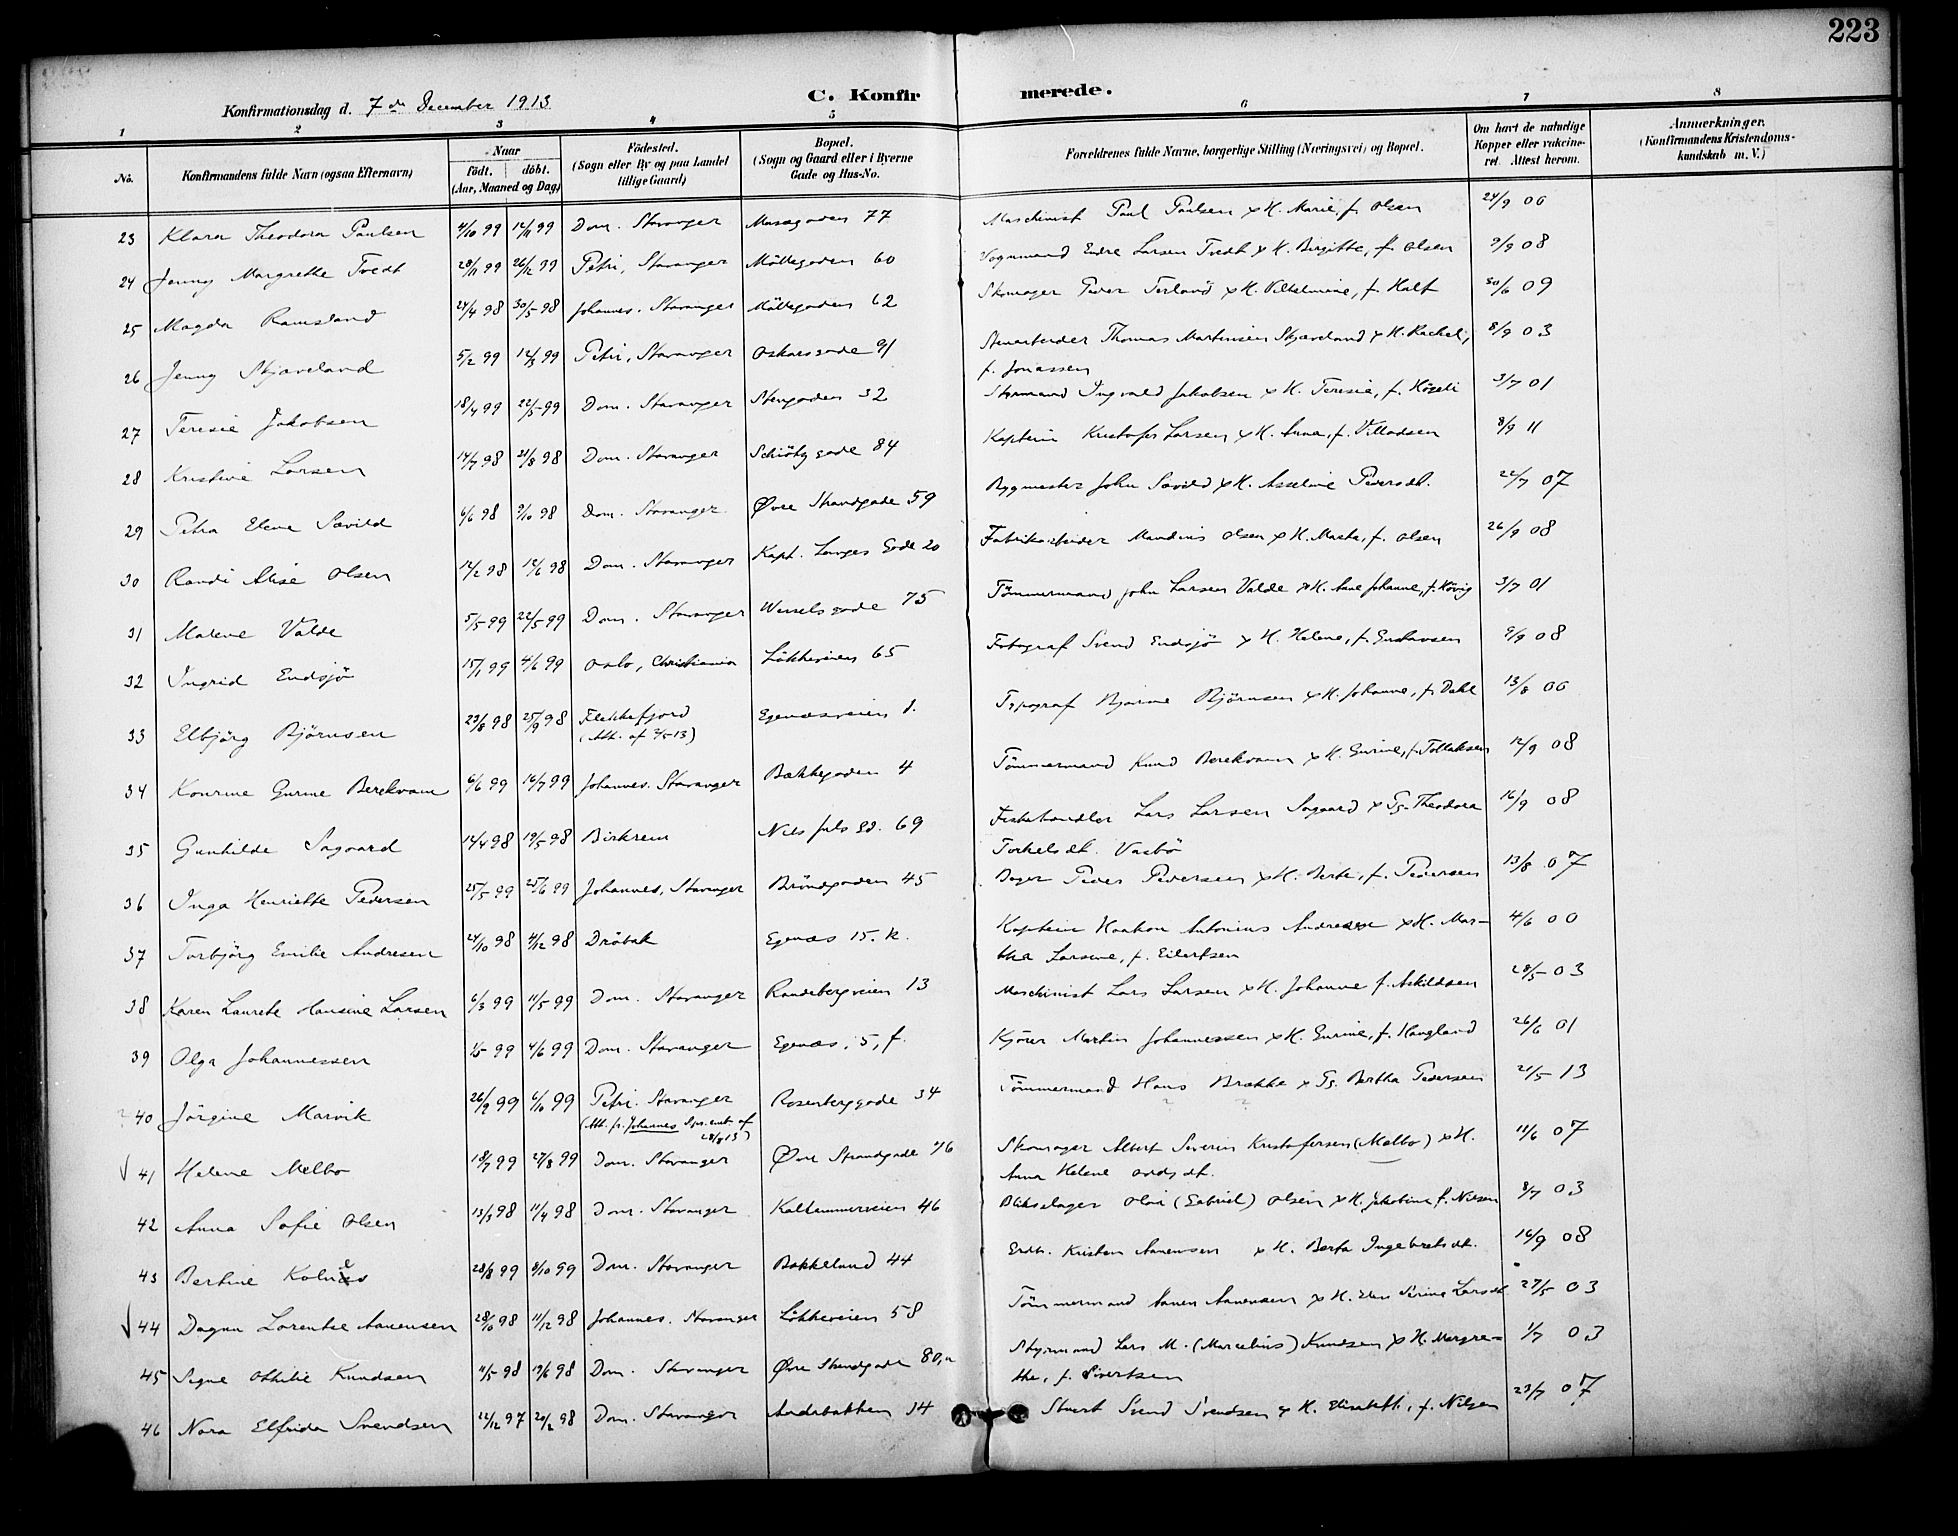 223
Konfirmationsdag d. 7de December 1913
C. Konfirmerede.
1 2 3 4 5 6 7 8
No. Konfirmandens fulde Navn (ogsaa Efternavn) Naar födt. döbt. (Aar, Maaned og Dag) Födested. (Sogn eller By og paa Landet tillige Gaard) Bopæl. (Sogn og Gaard eller i Byerne Gade og Hus-No. Forældrenes fulde Navne, borgerlige Stilling (Næringsvei) og Bopæl. Om havt de naturlige Kopper eller vakcineret. Attest herom. Anmærkninger. (Konfirmandens Kristendomskundskab m. V.)
23 Klara Theodora Paulsen 4/10 99 12/11 99 Dom. Stavanger Musegaden 77 Maschinist Paul Paulsen x H. Marie, f. Olsen 24/9 06
24 Jenny Margrethe Tvedt 28/11 99 26/12 99 Petri, Stavanger Möllegaden 60 Vognmand Endre Larsen Tvedt x H. Birgitte, f. Olsen 9/9 08
25 Magda Ramsland 24/4 98 30/5 98 Johannes. Stavanger Möllegaden 62 Skomager Peder H. Vilhelmine, f. Half 30/6 09
26 Jenny Skjæveland 5/2 99 12/3 99 Petri, Stavanger Oskarsgade 91 Stenarbeider Thomas Martinsen Skjæveland x H. Rachel,
f. Jonassen 8/9 03
27 Teresie Jakobsen 18/4 99 22/5 99 Dom. Stavanger Stengaden 32 Styrmand Ingvald Jakobsen x H. Teresie, f. Högeli 3/7 01
28 Kristine Larsen 14/7 98 21/8 98 Dom. Stavanger Schiötz gade 84 Kaptein Kristofer Larsen x H. Anna, f. Villadsen 8/9 11
29 Petra Elene Sævild 6/6 98 9/10 98 Dom. Stavanger. Øvre Strandgade 59 Bygmester John Sævild x H. Asseline Pedersdt. 22/7 07
30 Randi Alise Olsen 12/2 98 12/6 98 Dom. Stavanger Kapt. Langes Gade 20 Fabrikarbeider Mandius Olsen x H. Marta, f. Olsen 26/9 08
31 Malene Valde 5/5 99 22/5 99 Dom. Stavanger Wesselsgade 75 Tömmermand John Larsen Valde x H. Ane Johanne, f. Hövig 3/7 01
32 Ingrid Endsjö 15/1 99 4/6 99 Oslo, Christiania Lökkeveien 65 Fotograf Svend Endsjö x H. Helene, f. Gustavsen 9/9 08
33 Elbjörg Björnsen 23/8 98 25/9 98 Flekkefjord Egenæsveien 1. Typograf Bjarne Björnsen x H. Johanne, f. Dahl 13/8 06
(Att. af 2/5 13)
34 Konrine Gurine Berekvam 6/6 99 16/7 99 Johannes. Stavanger Bækkegaden 4 Tömmermand Knud Berekvam x H. Gurine, f. Tollaksen 12/9 08
35 Gunhilde Sogaard 14/4 98 19/5 98 Birkrem Nils Juls gd. 69 Fiskehandler Lars Larsen Sogaard x Tg. Theodora
Torkelsdt. Vasbö 16/9 08
36 Inga Henriette Pedersen 25/5 99 25/6 99 Johannes, Stavanger Bröndgaden 45 Bager Peder Pedersen x H. Berta, f. Pedersen 13/8 07
37 Torbjörg Emilie Andresen 24/10 98 4/12 98 Dröbak Egenæs 15. k. Kaptein Haakon Antonius Andresen x H. Mar-
tha Larsine, f. Eilertsen 4/6 00
38 Karen Laurette Hansine Larsen 6/3 99 11/5 99 Dom. Stavanger Randebergveien 13 Maschinist Lars Larsen x H. Johanne f. Askildsen 28/5 03
39 Olga Johannessen 1/5 99 4/6 99 Dom. Stavanger Egenæs, 5, f. Kjörer Martin Johannessen x H. Gurine, f. Haugland 26/6 01
40 Jörgine Marvik 26/9 99 6/10 99 Petri. Stavanger Rosenberggade 34 Tömmermand Hans Brække x Tg. Bertha Pedersen 21/5 13
(Att. fr. Johannes Spr.emb. af
28/8 13)
41 Helene Melbo 18/7 99 27/8 99 Dom. Stavanger Øvre Strandgade 76 Skomager Albert Severin Kristofersen (Melbo) x H.
Anna Helene dt. 11/6 07
42 Anna Sofie Olsen 13/3 98 11/4 98 Dom. Stavanger Kalhammerveien 46 Blikslager Olai (Gabriel) Olsen x H. Jakobine, f. Nilsen 8/7 03
43 Bertine 28/8 99 8/10 99 Dom. Stavanger Bakkeland 44 Kristen Aanensen x H. Berta Ingebretsdt. 16/9 08
44 Dagny Lorentse Aanensen 28/10 98 11/12 98 Johannes. Stavanger Lökkeveien 58 Tömmermand Aanen Aanensen x H. Serine Larsdt 27/5 03
45 Signe Othilie Knudsen 11/5 98 19/6 98 Dom. Stavanger Øvre Strandgade 80,a Styrmand Lars M. (Marcelius) Knudsen x H. Margre-
the, f. Sivertsen 1/7 03
46 Nora Elfrida Svendsen 12/12 97 20/2 98 Dom. Stavanger Andabakken 14 Stuert Svend Svendsen x H. Elisabeth, f. Nilsen 23/7 07